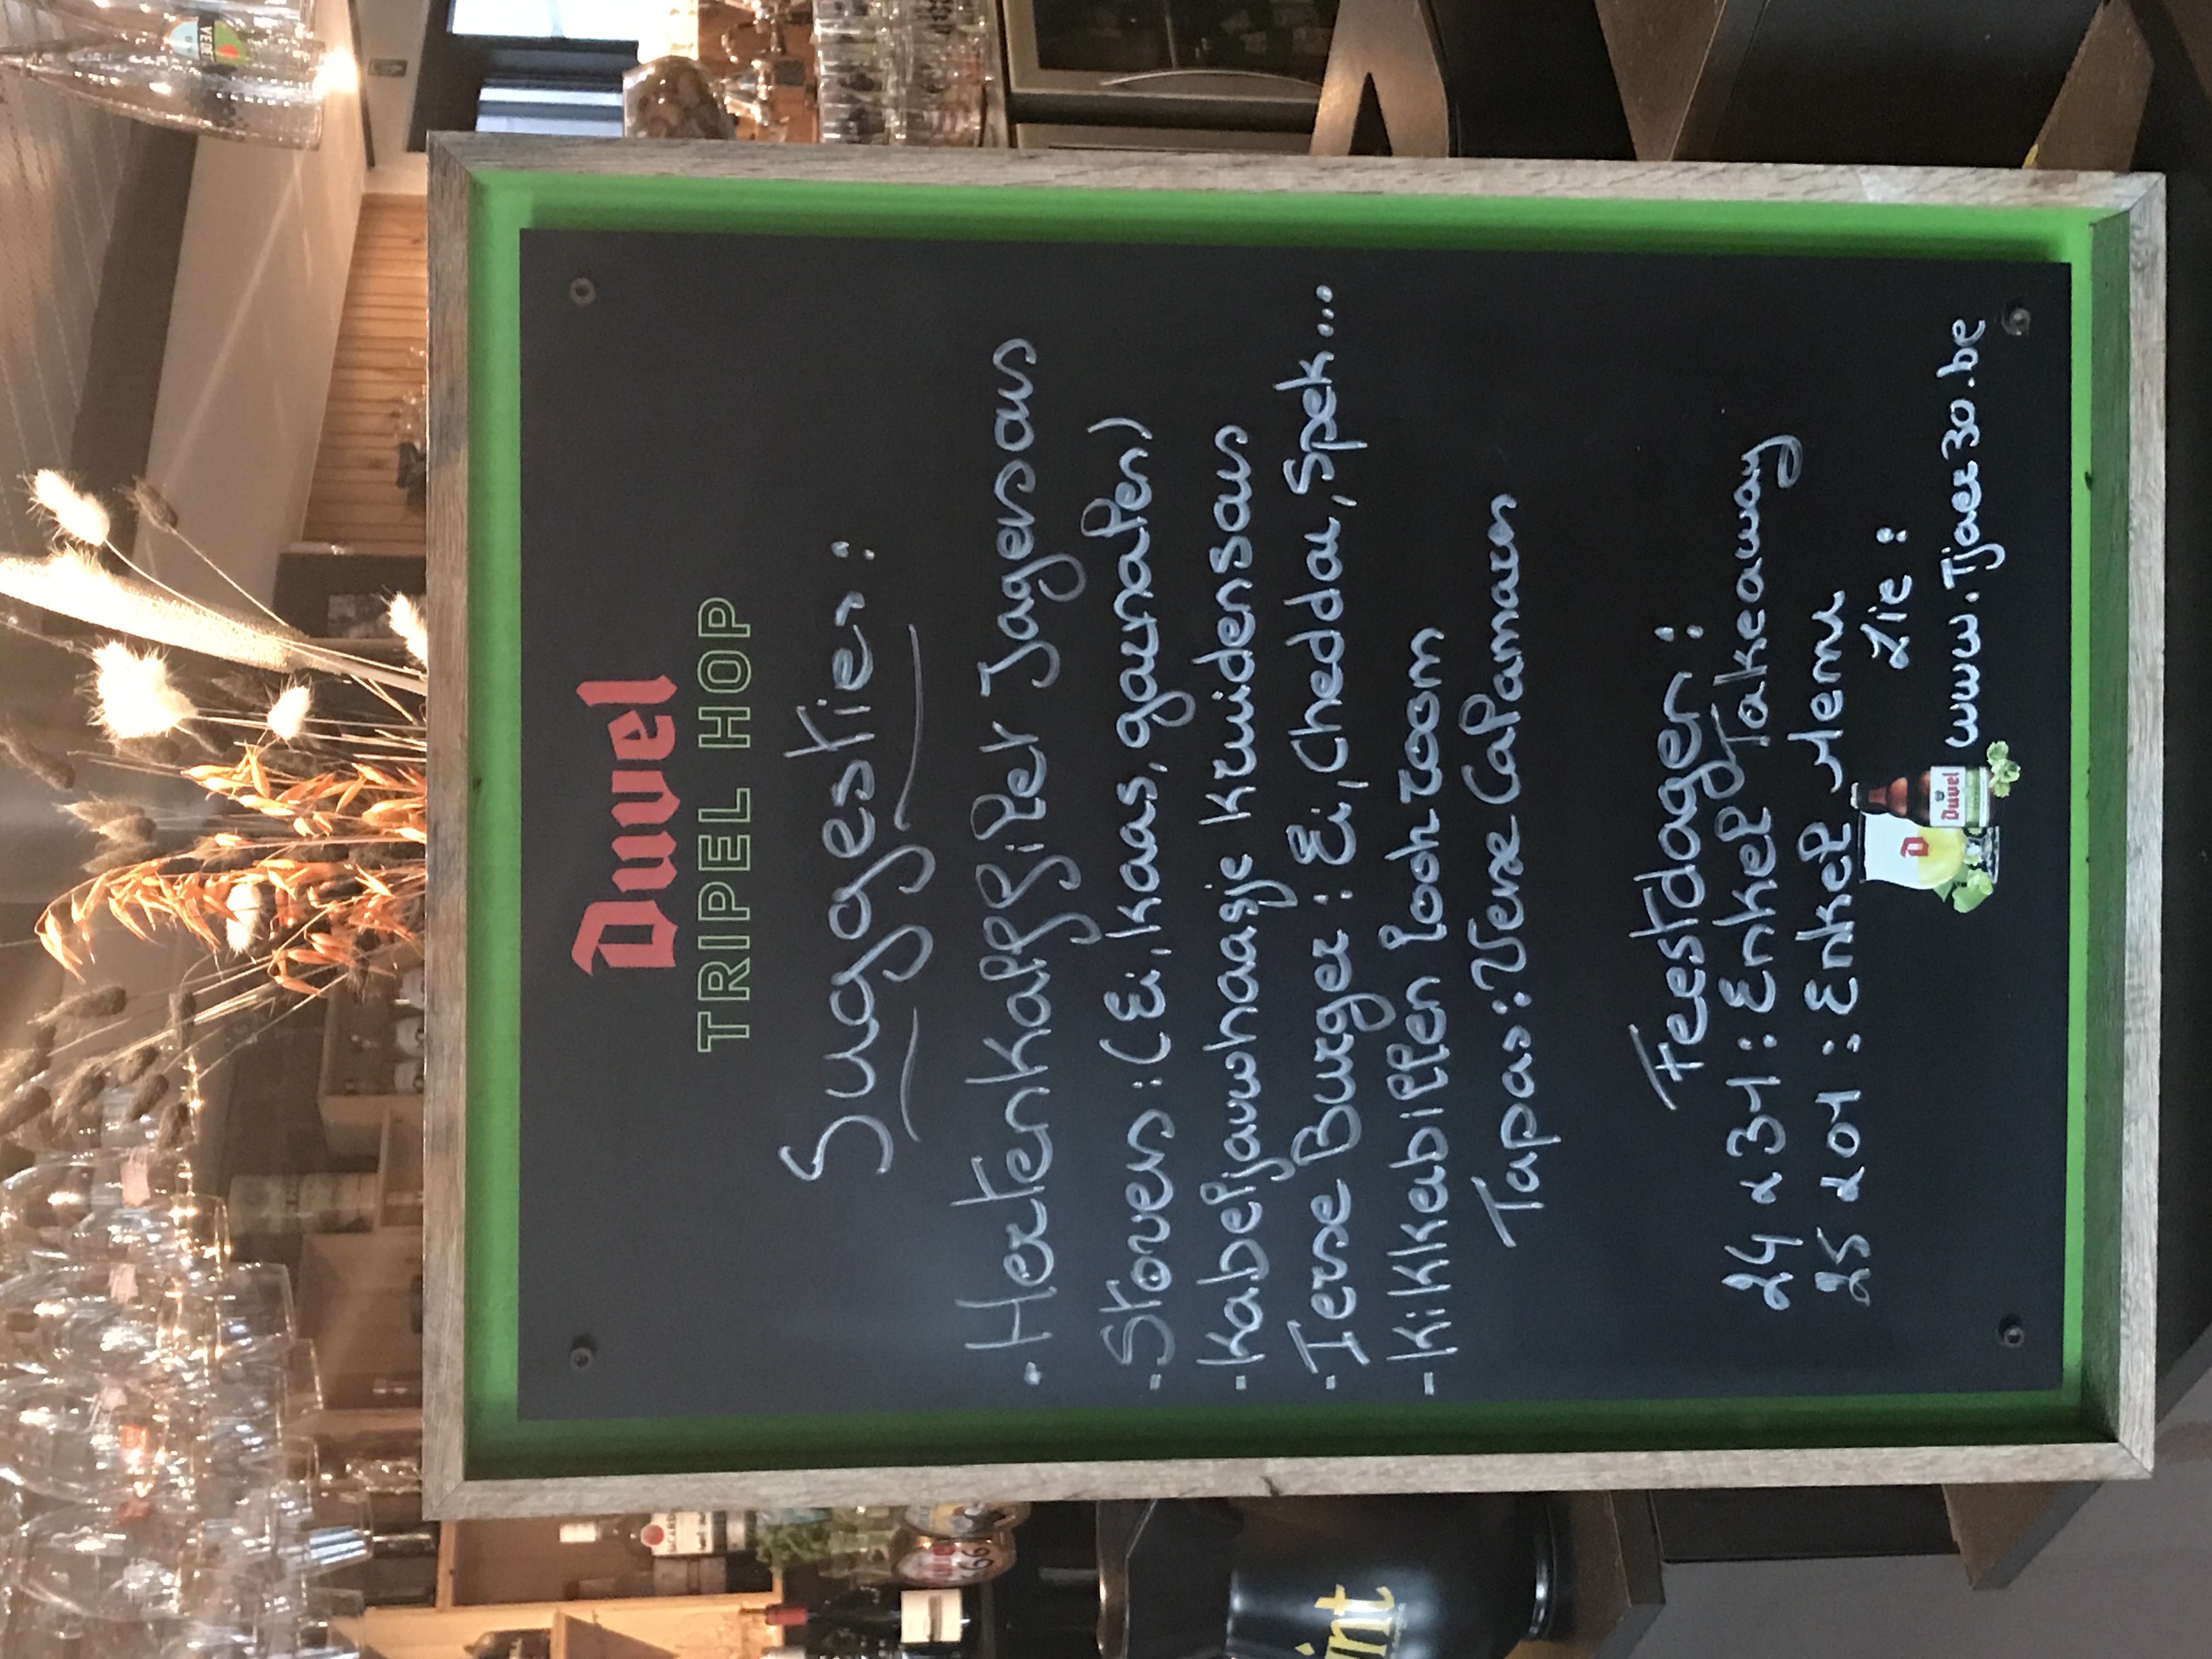 Duvel
TRIPEL HOP
Suggesties:
- Hertenkalffilet Jagersaus
- Slovens: (Ei, kaas, garnalen)
- Kabeljauwhaasje Kruidensaus
- Ierse Burger: Ei, Cheddar, Spek...
- Kikkerbillen lookroom
Tapas: Verse Calamares
Feestdagen:
24 & 31: Enkel Takeaway
25 & 01: Enkel Menu
Zie:
www.Tjaer30.be
Duvel
int
VEDETT